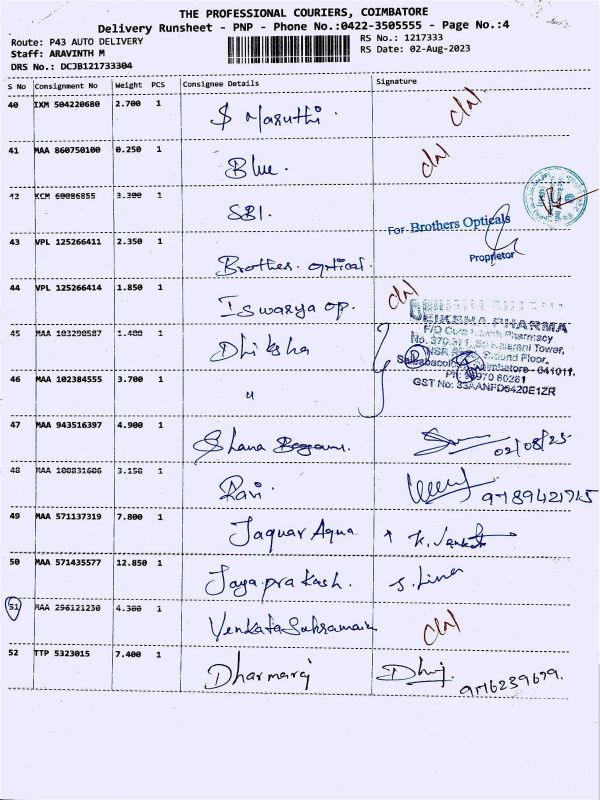 THE PROFESSIONAL COURIERS, COIMBATORE
Delivery Runsheet - PNP - Phone No.:0422-3505555 - Page No.:4
Route: P43 AUTO DELIVERY
RS No.: 1217333
Staff: ARAVINTH M
RS Date: 02-Aug-2023
DRS No.: DCJB121733304
S No Consignment No Weight PCS Consignee Details Signature
40 IXM 504220680 2.700 1
S Maruthi.
41 MAA 860750100 0.250 1
Blue.
42 KCM 60086855 3.300 1
SBI.
For Brothers Opticals
Proprietor
43 VPL 125266411 2.350 1
Brother optical.
44 VPL 125266414 1.850 1
Iswarya op.
DEIKSHA PHARMA
45 MAA 103290587 1.400 1
Dhiksha
Ground Floor,
641011.
GST No: 33AANFD6420E1ZR
46 MAA 102384555 3.700 1
"
47 MAA 943516397 4.900 1
Shana Begam.
02/08/23
48 MAA 100831606 3.150 1
Ravi.
9789421725
49 MAA 571137319 7.800 1
Jaquar Aqua
K. Venkat
50 MAA 571435577 12.850 1
Jayaprakash.
S. Lina
51 MAA 296121230 4.300 1
Venkata Subramain
52 TTP 5323015 7.400 1
Dharmaraj